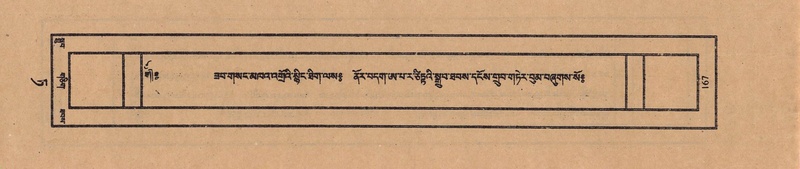 ཟབ་གསང་མཁའ་འགྲོའི་སྙིང་ཐིག་ལས༔ ནོར་བདག་ཨ་པ་ར་ཙིཏྟའི་སྒྲུབ་ཐབས་དངོས་གྲུབ་གཏེར་བུམ་བཞུགས་སོ༔
167